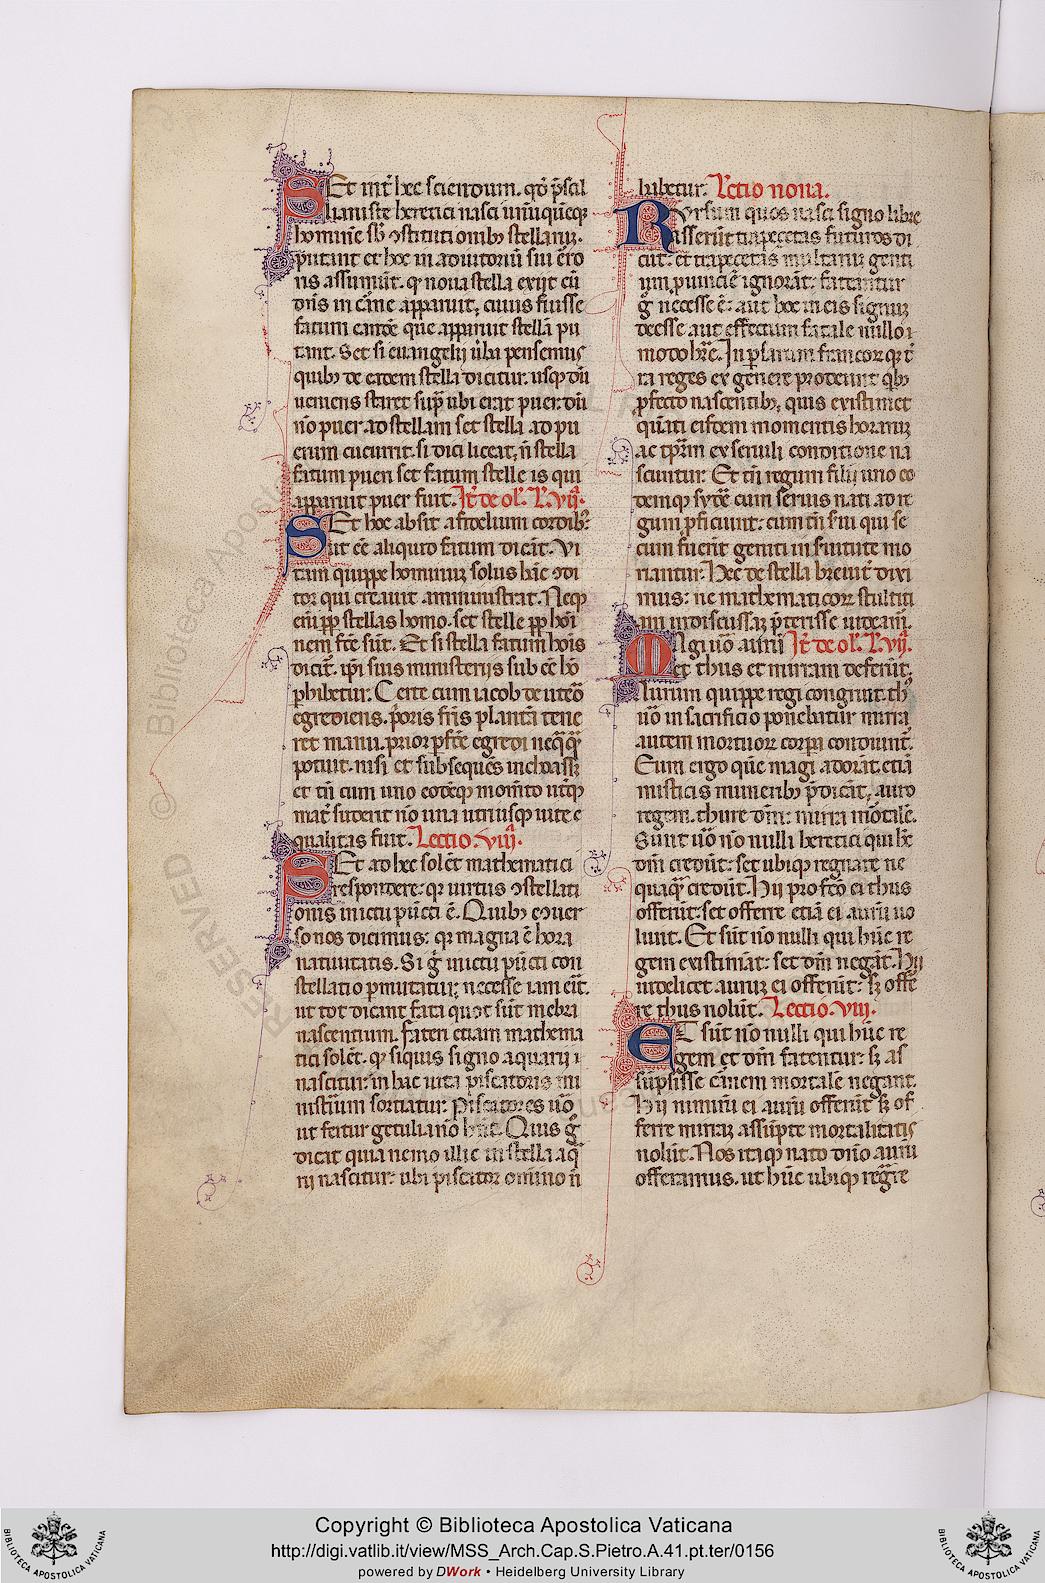 Set int̄ hec sciendum. qđ p̄scil
lianiste heretici nasci unūquēqꝫ
hominē sb̄ ↄstitutionibꝫ stellaruꝫ.
putant et hoc in adiutoriū sui erro
ris assumūt. qꝙ noua stella exijt cū
dn̄s in carne apparuit, cuius fuisse
fatum eandē que apparuit stellā pu
tant. Set si euangelij ūba pensemus
quibꝫ de eadem stella dicitur. usqꝫ dū
ueniens staret sup̄ ubi erat puer. dū
nō puer ad stellam set stella ad pu
erum cucurrit. si dici liceat, n̄ stella
fatum pueri set fatum stelle is qui
apparuit puer fuit. It̄ de ol'. L'. vij.
Set hoc absit a fidelium cordibꝫ
ut eē aliquid fatum dicāt. Vi
tam quippe hominuꝫ solus hāc ↄdi
tor qui creauit amministrat. Neqꝫ
eni pp̄ stellas homo. set stelle pp̄ hoī
nem fc̄e sūt. Et si stella fatum hoīs
dicit̄. ip̄i suis ministerijs sub eē hō
phibetur. Certe cum iacob de utero
egrediens. p̄oris fr̄is plantā tene
ret manu. prior pfc̄e egredi neq̄q̄
potuit. nisi et subsequēs inchoass;
et tn̄ cum uno eodēqꝫ momēto utq̄ꝫ
mat̄ fuderit nō una utriusqꝫ uite e
qualitas fuit. Lectio viij.
Set ad hec solēt mathematici
respondere: qꝫ uirtus ↄstellati
onis in ictu pūcti ē. Quibꝫ eↄuer
so nos dicimus: qꝫ magna ē hora
natiuitatis. Si g̊ in ictu pūcti con
stellatio pmutatur; necesse iam erit.
ut tot dicant fati quot sūt mēbra
nascentium. Fateri etiam mathema
tici solēt. qꝙ siquis signo aquarij ī
nascitur: in hac uita piscatoris mi
nistium sortiatur: Piscatores uō
ut fertur getulia nō hūit. Quis g̊
dicat quia nemo illic in stella aq̄
rij nascitur: ubi piscator omīno n̄
habetur. Lc̄tio nona.
Rursum quos nasci signo libre
asserūt trapecetas futuros di
cūt: et trapecetas multaruꝫ genti
um puincie ignorāt: fateantur
g̊ necesse ē: aut hoc in eis signuꝫ
deesse aut effectum fatale nullo
modo hr̄e. In psarum francorꝫ qꝫ t̄
ra reges ex genere prodeunt qbꝫ
pfecto nascentibꝫ, quis existimet
quāti eisdem momentis horaruꝫ
ac tp̄rm ex seruili conditione na
scuntur. Et tn̄ regum filij uno eo
demqꝫ sydē cum seruis nati ad re
gum pficiunt: cum tn̄ serui qui se
cum fuerūt geniti in suitute mo
riantur. Hec de stella breuit̄ dixi
mus: ne mathematicorꝫ stultiti
am indiscussaꝫ p̄terisse uideam̄.
Magi uō aurū It̄ de ol'. L'. vij.
et thus et mirram deferūt.
Aurum quippe regi congruit. thꝰ
uō in sacrificio ponebatur mirra
autem mortuorꝫ corpa condiunt̄.
Eum ergo quē magi adorāt. etiā
misticis muneribꝫ p̄dicāt, auro
regem. thure dm̄: mirra mōtalē.
Sunt uō nō nulli heretici qui hc̄
dm̄ credūt: set ubiqꝫ regnare ne
quaq̄ credūt. Hij profco ei thus
offerūt: set offerre etiā ei aurū no
lunt. Et sūt nō nulli qui hūc re
gem existimāt: set dm̄ negāt. Hij
uidelicet auruꝫ ei offerūt: sꝫ offe
re thus nolūt. Lectio. viij.
Et sūt nō nulli qui hūc re
gem et dm̄ fatentur: sꝫ as
sūpsisse carnem mortalē negant.
Hij nimirū ei aurū offerūt sꝫ of
ferre mirraꝫ assūpte mortalitatis
nolūt. Nos itaqꝫ nato dn̄o aurū
offeramus. ut hūc ubiqꝫ regn̄re
Copyright © Biblioteca Apostolica Vaticana
http://digi.vatlib.it/view/MSS_Arch.Cap.S.Pietro.A.41.pt.ter/0156
powered by DWork • Heidelberg University Library
BIBLIOTECA APOSTOLICA VATICANA
BIBLIOTECA APOSTOLICA VATICANA